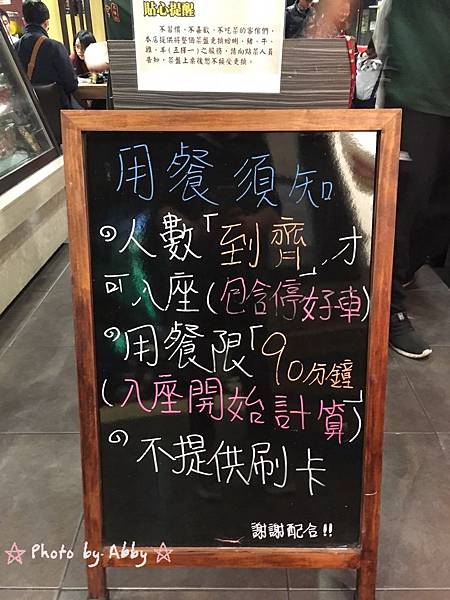 貼心提醒
不習慣、不喜歡、不吃茶的客倌們，
本店提供將整個茶盤更換蛤蜊、豬、牛、
雞、羊(五擇一)之服務，請向點茶人員
告知，茶盤上桌後恕不接受更換。
用餐須知
人數「到齊」，才
可入座(包含停好車)
用餐限「90分鐘」
(入座開始計算)
不提供刷卡
謝謝配合!!
☆ Photo by. Abby ☆